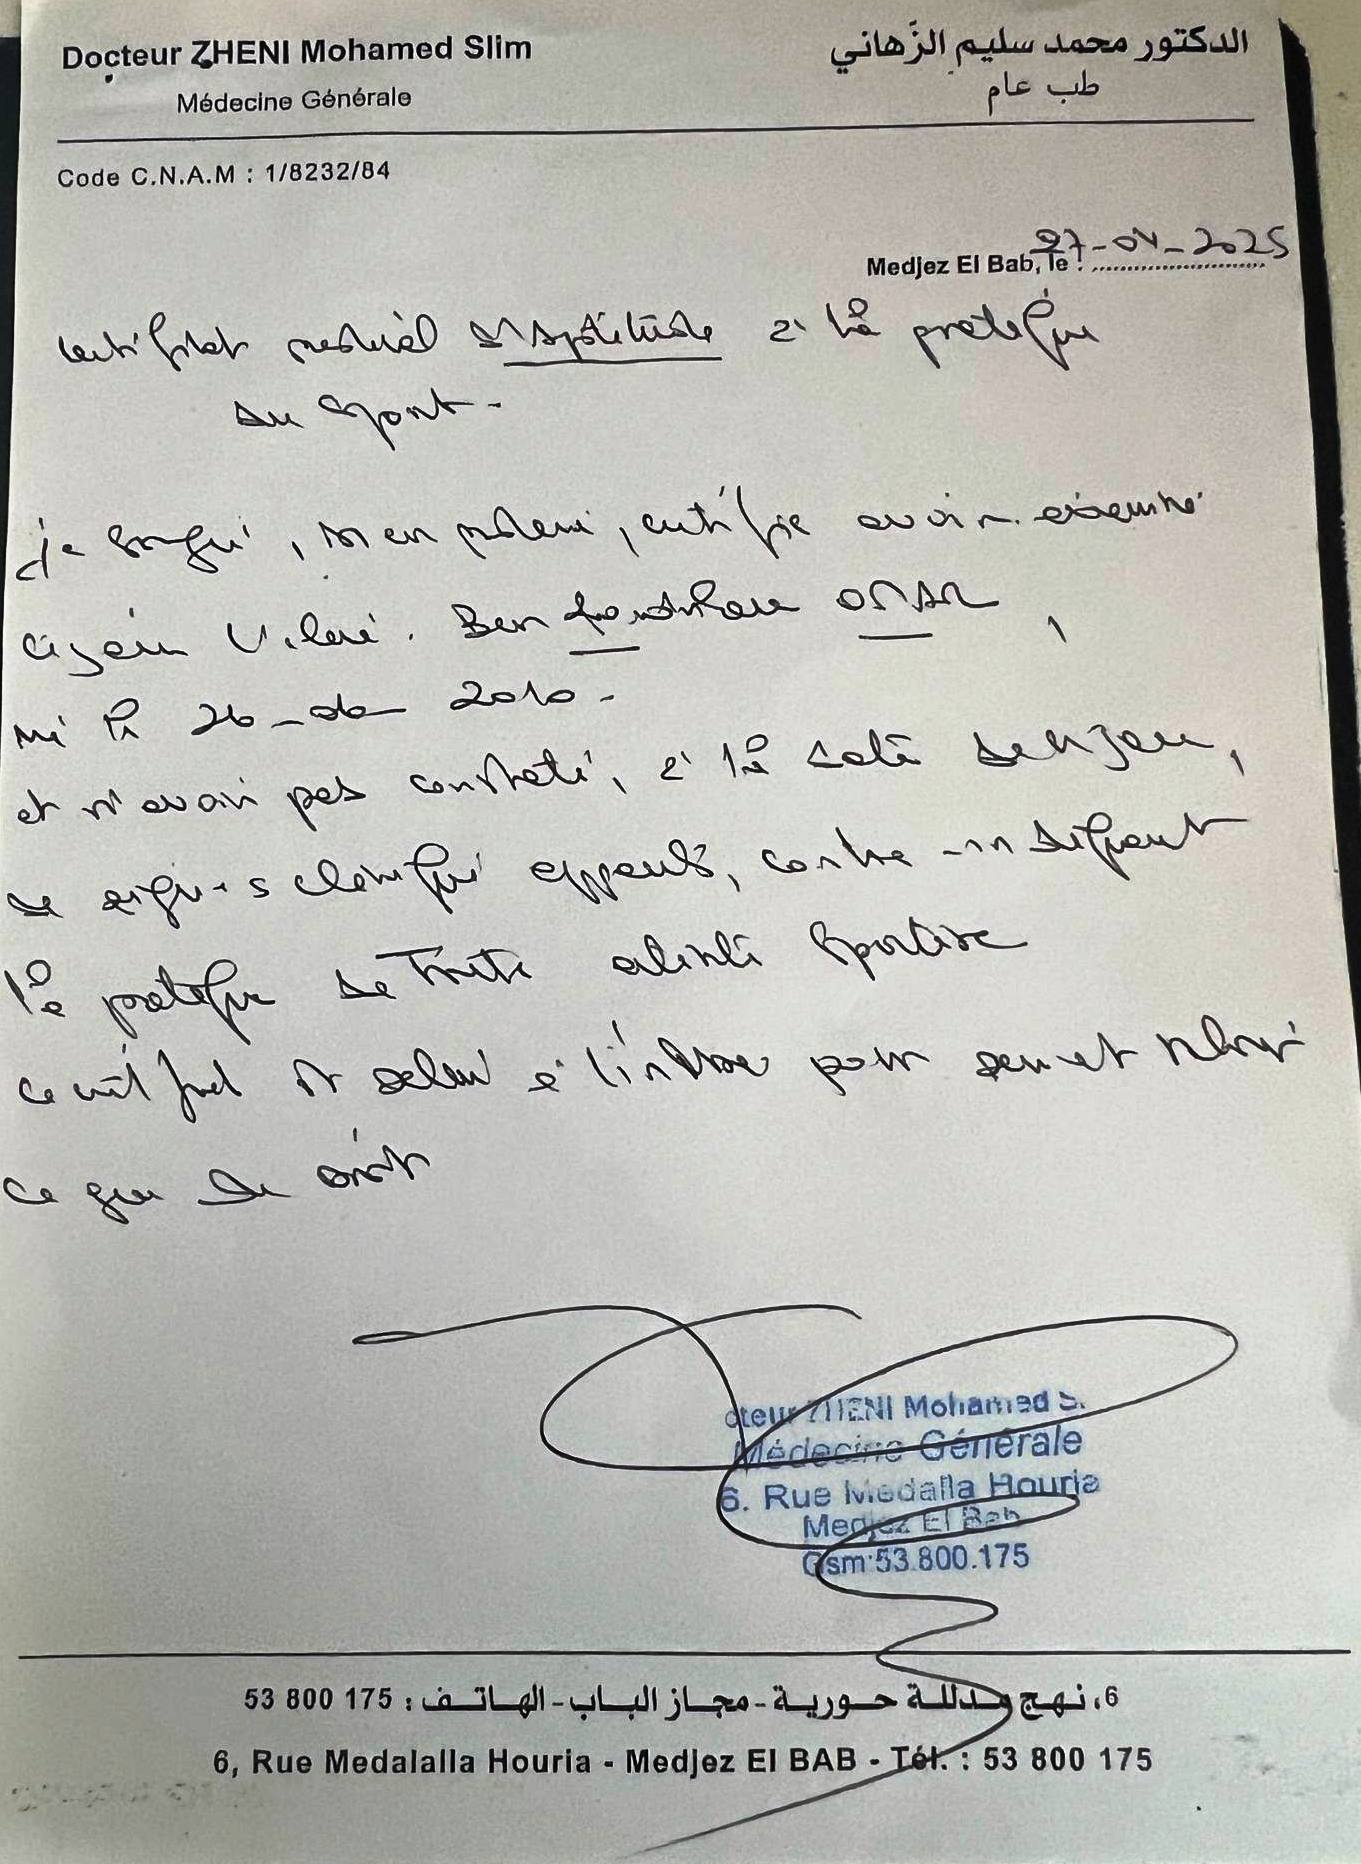 Docteur ZHENI Mohamed Slim
Médecine Générale
الدكتور محمد سليم الزّهاني
طب عام
Code C.N.A.M : 1/8232/84
Medjez El Bab, le : 27-04-2025
Certificat médical d'Aptitude à la pratique
du sport -
Je soussigné, certifie avoir examiné
Ben OMAR,
né le 26 2010 -
et n'avoir pas constaté, à la date de ce jour,
de signes cliniques apparents, contre-indiquant
la pratique de toute activité sportive
Certificat est délivré à l'intéressé pour servir et valoir
ce que de droit
cteur ZHENI Mohamed S.
Médecine Générale
6. Rue Medalla Houria
Medjez El Bab
Gsm:53.800.175
6، نهج مدللة حورية - مجاز الباب - الهاتف : 175 800 53
6, Rue Medalalla Houria - Medjez El BAB - Tél. : 53 800 175